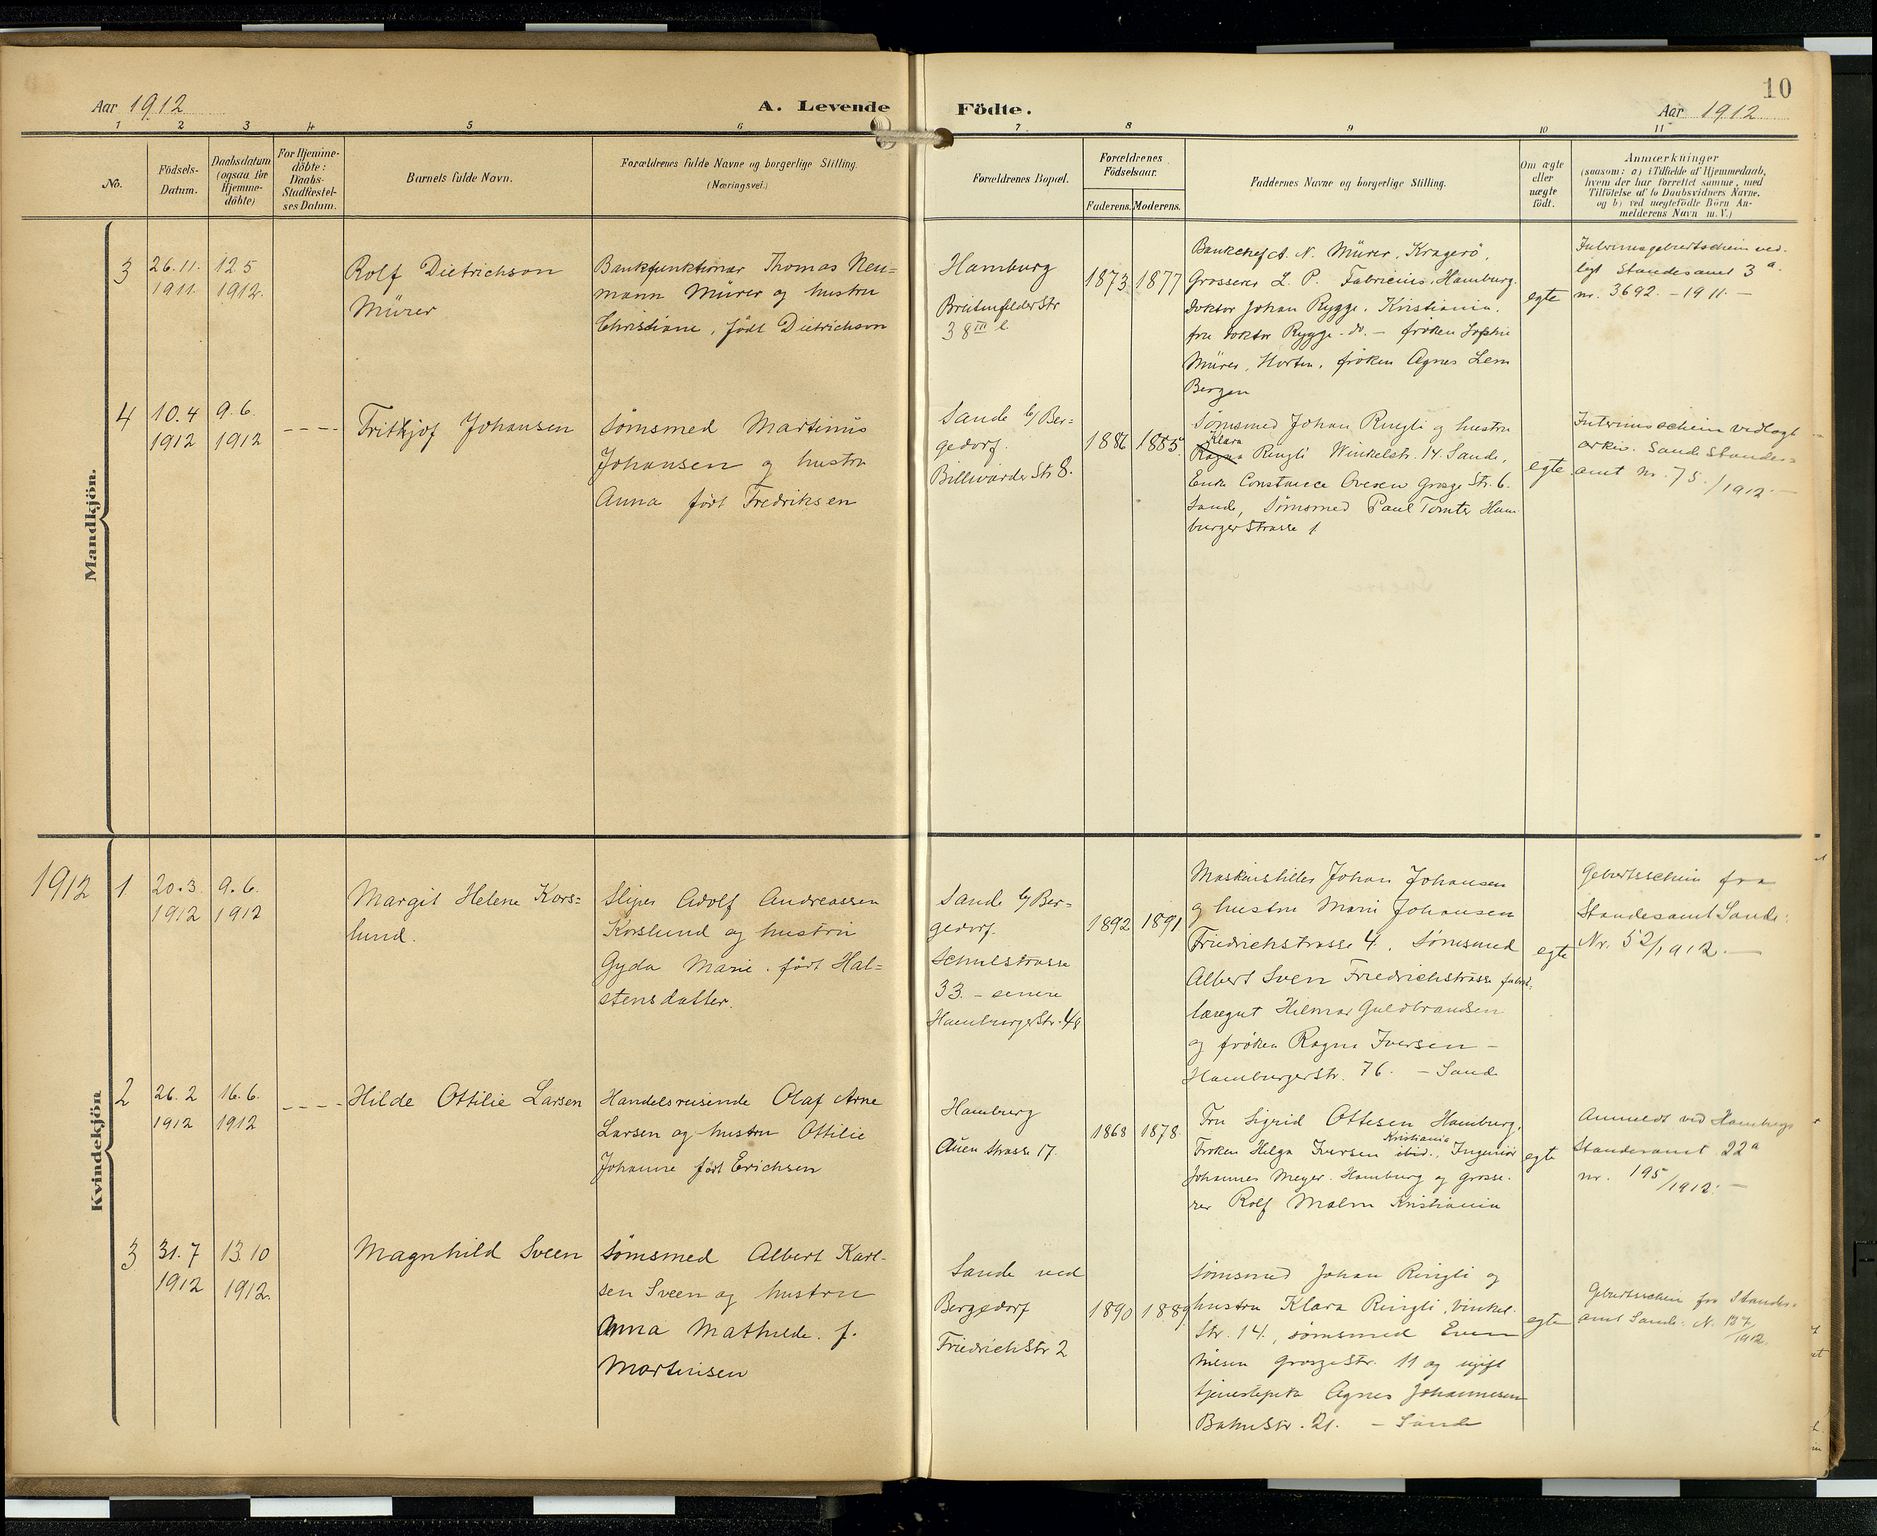 Aar 1912
A. Levende
Födte.
Aar 1912
10
1 2 3 4 5 6 7 8 9 10 11
No.
Födsels-
Datum.
Daabsdatum
(ogsaa for
Hjemme-
döbte)
For Hjemme-
döbte:
Daabs-
Stadfæstel-
ses Datum.
Barnets fulde Navn.
Forældrenes fulde Navne og borgerlige Stilling.
(Næringsvei.)
Forældrenes Bopæl.
Forældrenes
Födselsaar.
Faderens. Moderens.
Faddernes Navne og borgerlige Stilling.
Om ægte
eller
uægte
født.
Anmærkninger
(saasom: a) i Tilfælde af Hjemmedaab,
hvem der har forrettet samme, med
Tilföielse af to Daabsvidners Navne,
og b) ved uegtefödte Börn An-
melderens Navn m. V.)
Mandkjön.
3
26.11.
1911.
12 5
1912.
Rolf Dietrichson
Mürer
Bankfunktionær Thomas Neu-
mann Mürer og hustru
Christiane, født Dietrichson
Hamburg
Breitenfelder Str
38 III l
1873
1877
Bankchef A. N. Mürer, Kragerö,
Grosserer L. P. Fabricius, Hamburg.
Doktor Johan Rygge, Kristiania,
fru doktor Rygge. do. – frøken Sophie
Mürer, Horten, frøken Agnes Lem
Bergen
egte
Interimsgeburtsschein ved-
lagt Standesamt 3 a.
nr. 3692. – 1911. –
4
10.4
1912
9.6.
1912
Fritkjof Johansen
Sömsmed Martinus
Johansen og hustru
Anna født Fredriksen
Sande b/ Ber-
gedorf.
Billwärder Str 8.
1886
1885
Sømsmed Johan Ringli og hustru
Klara
Ragna Ringli Winkelstr. 14. Sande,
Enke Constance Ovesen Grosze Str. 6.
Sande, Sømsmed Paul Tomter Ham
burger Strasse 1
egte
Interimsschein vedlagt
arkiv. Sande Standes=
amt nr. 75./1912. –
Kvindekjön
1912
1
20.3.
1912
9.6.
1912
Margit Helene Kors-
lund.
Sliper Adolf Andreassen
Korslund og hustru
Gyda Marie. født Hal-
stensdatter.
Sande b/ Ber-
gedorf.
Schulstrasse
33. – senere
Hamburger Str. 48
1892
1891
Maskinstiller Johan Johansen
og hustru Marie Johansen
Friedrichstrasse 4, Sømsmed
Albert Sven Friedrichstrasse
Hilmar Guldbrandsen
og frøken Ragna Iversen –
Hamburgerstr. 76. – Sand
egte
Geburtsschein fra
Standesamt Sande:
Nr. 52/1912. –
2
26.2
1912
16.6.
1912
Hilde Ottilie Larsen
Handelsreisende Olaf Arne
Larsen og hustru Ottilie
Johanne født Erichsen
Hamburg
Auen strasse 17.
1868
1878
Fru Sigrid Ottesen Hamburg,
Kristiania
Frøken Helga Iversen ibid., Ingeniör
Johannes Meyer. Hamburg og grosse-
rer Rolf Malm Kristiania
egte
Anmeldt ved Hamburgs
Standesamt 22a
nr. 195/1912. –
3
31.7
1912
13.10
1912.
Magnhild Sveen
Sömsmed Albert Karl-
sen Sveen og hustru
Anna Mathilde. f.
Martinsen
Sande ved
Bergedorf
Friedrichstr 2
1890
1889.
Sömsmed Johan Ringli og
hustru Klara Ringli, Vinkel-
str. 14., sømsmed Even
Nilsen Grosze Str. 11 og ugift
tjenestepike Agnes Johannesen
Bahnstr. 21. – Sande
egte
Geburtsschein fra Standes=
amt Sande. N. 137/
1912.